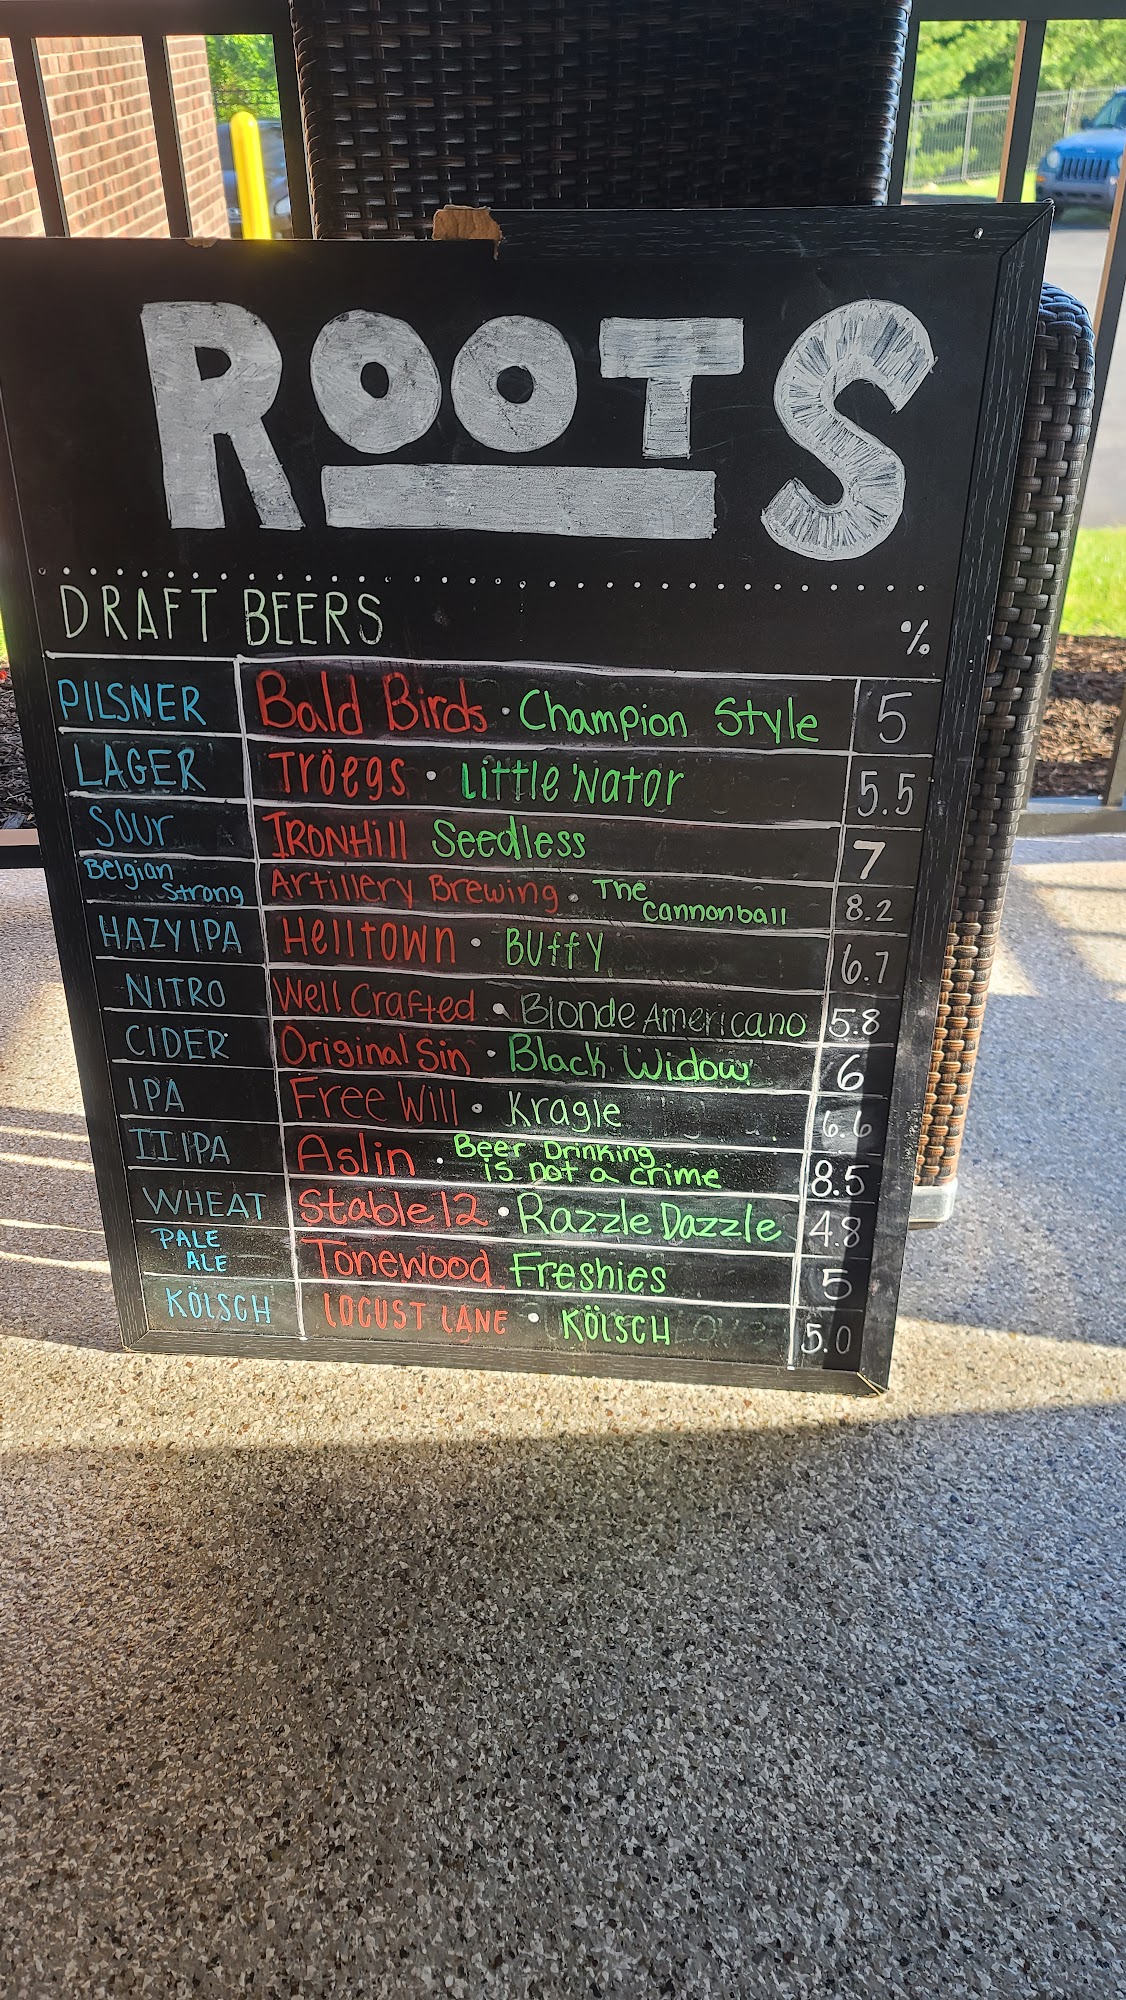 ROOTS
DRAFT BEERS %
PILSNER Bald Birds · Champion Style 5
LAGER Tröegs · Little 'Nator 5.5
SOUR IRONHill Seedless 7
Belgian Strong Artillery Brewing · The Cannonball 8.2
HAZY IPA Helltown · Buffy 6.7
NITRO Well Crafted · Blonde Americano 5.8
CIDER Original Sin · Black Widow 6
IPA Free Will · Kragle 6.6
IIIPA Aslin · Beer Drinking is not a crime 8.5
WHEAT Stable 12 · Razzle Dazzle 4.8
PALE ALE Tonewood Freshies 5
KÖLSCH LOCUST LANE · KÖLSCH 5.0